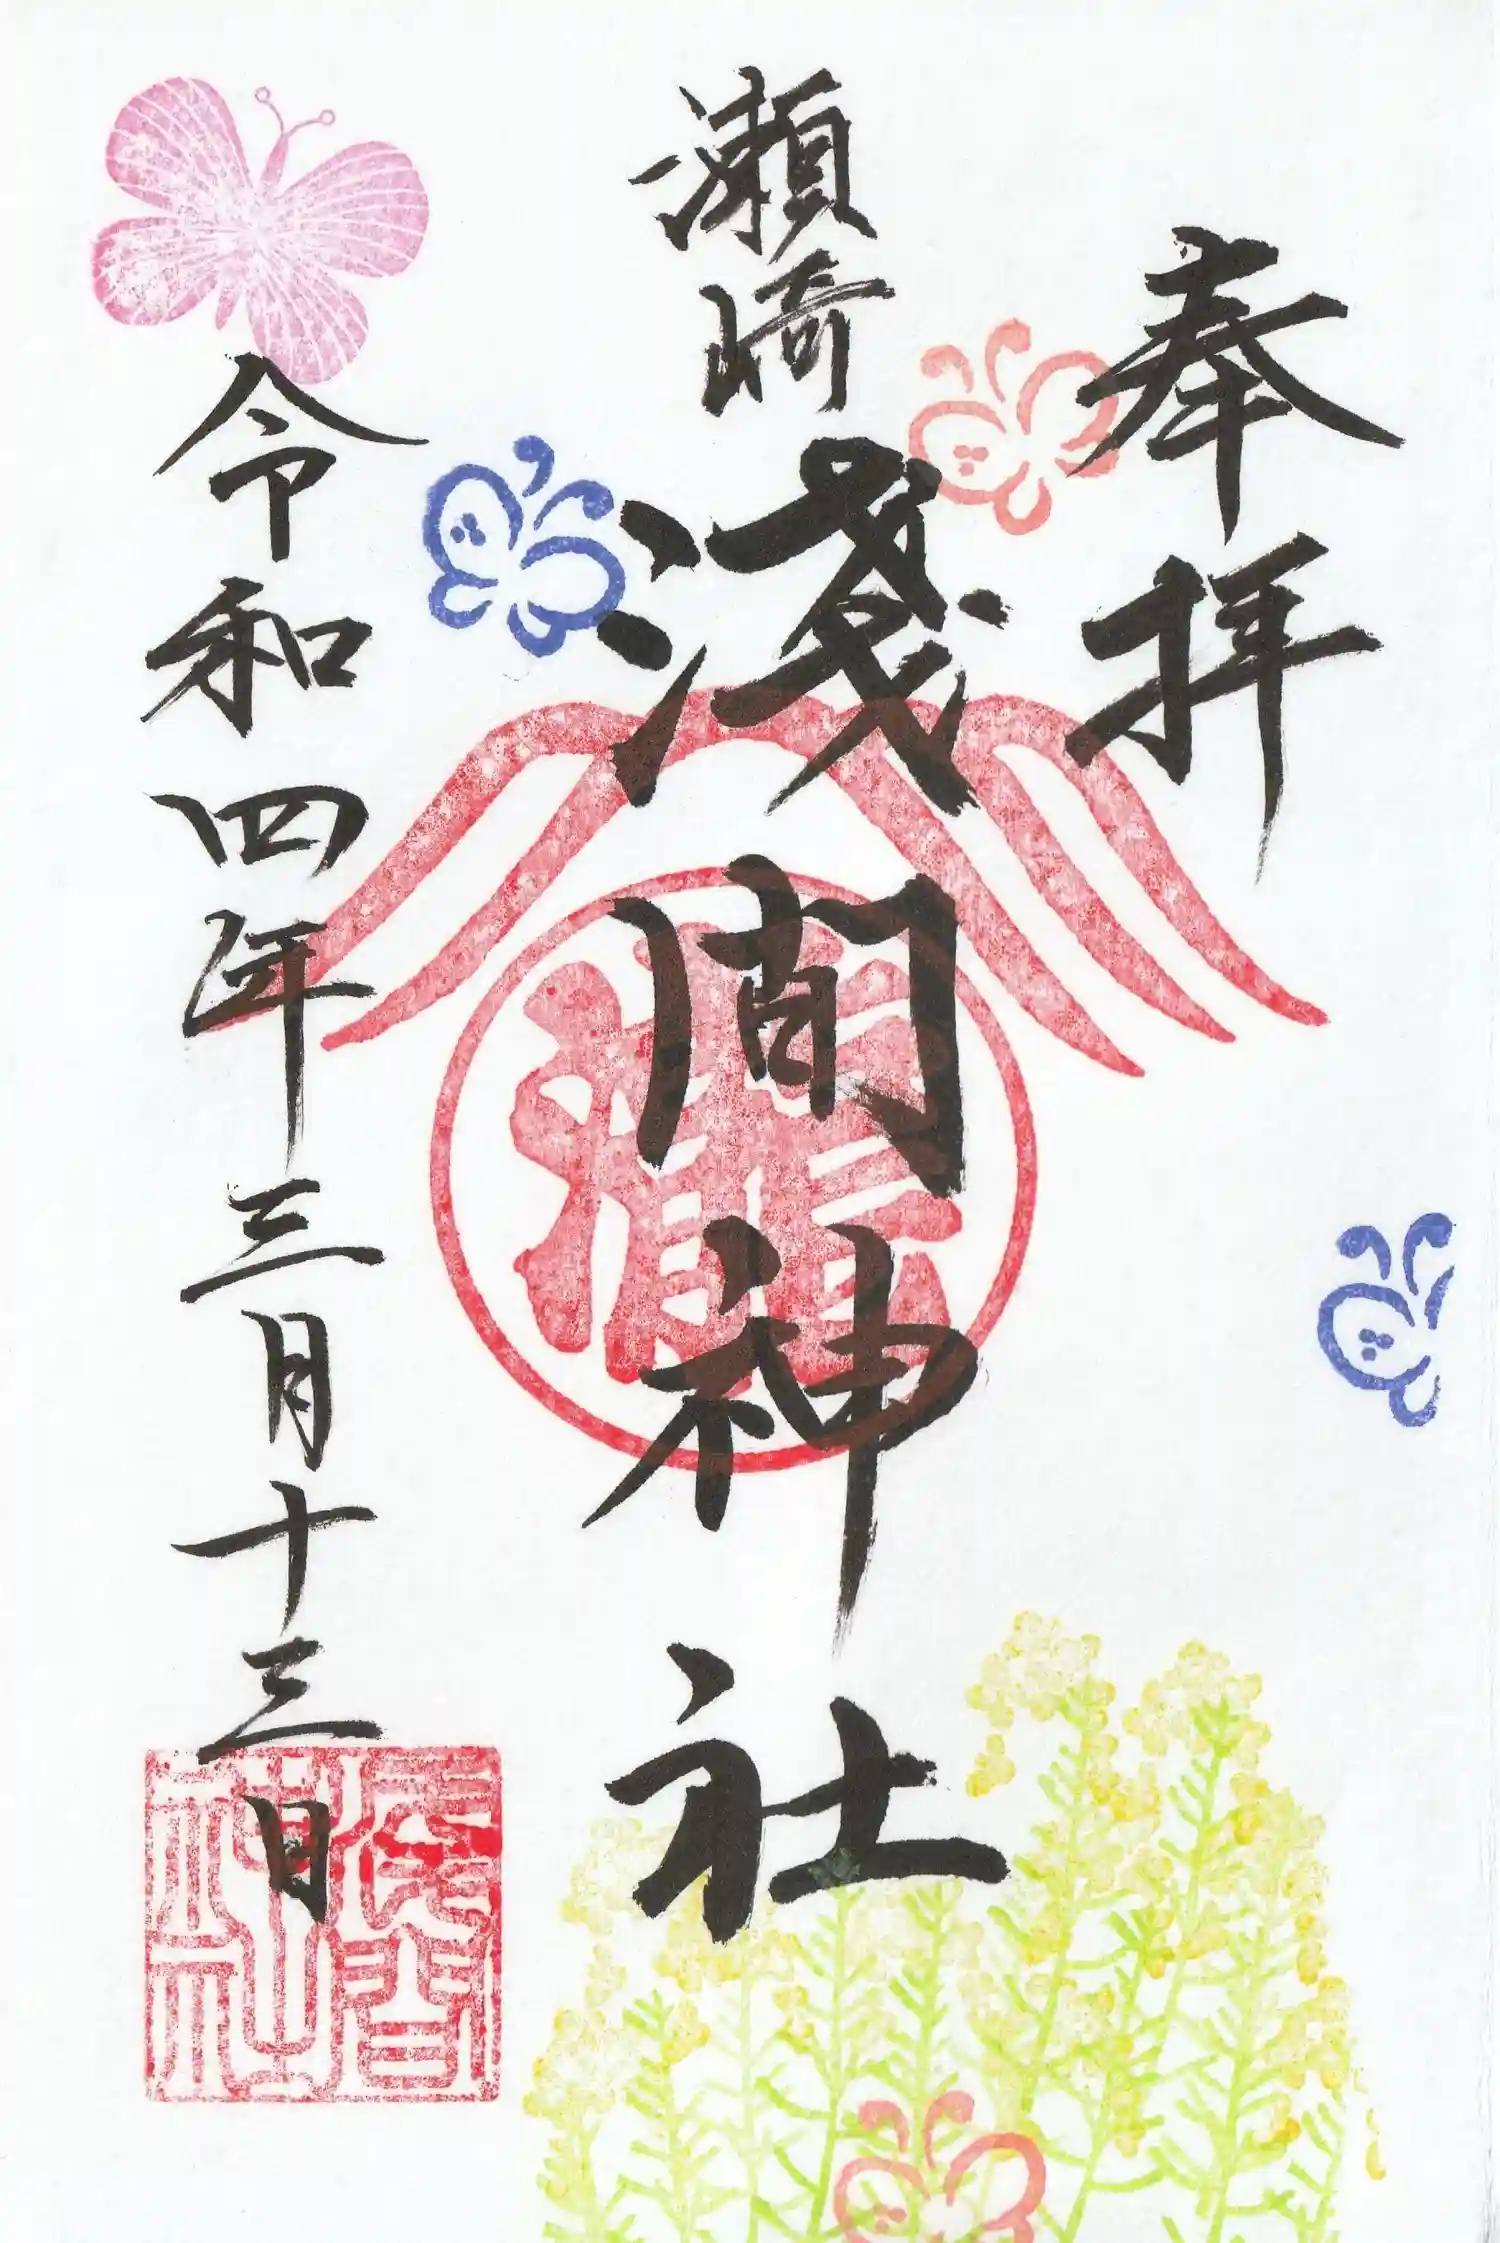 奉拝
瀬崎
淺間神社
令和四年三月十三日
淺間
神社